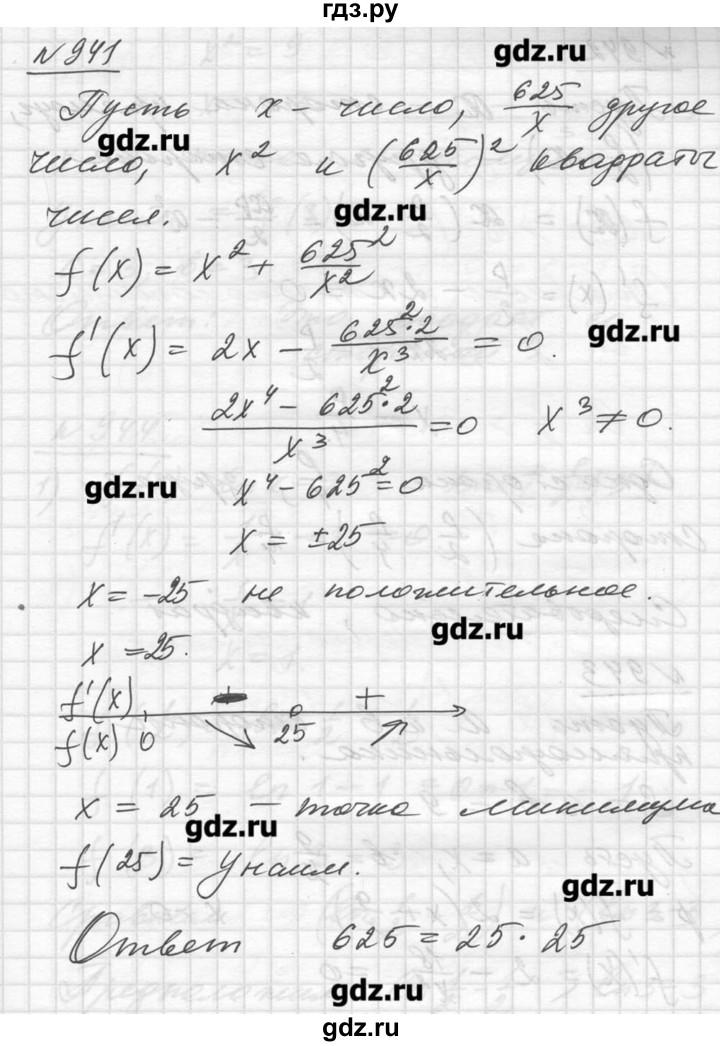 гдз.ру
№ 941
gdz.ru
Пусть x - число, 625/x другое
gdz.ru
число, x² и (625/x)² квадраты
чисел.
gdz.ru
f(x) = x² + 625²/x²
f'(x) = 2x - 625²·2/x³ = 0.
gdz.ru
2x⁴ - 625²·2/x³ = 0 x³ ≠ 0.
gdz.ru
x⁴ - 625² = 0
x = ±25
x = -25 не положительное.
gdz.ru
x = 25.
f'(x) - +
f(x) 0 25
x = 25 - точка минимума
gdz.ru
f(25) = y наим.
gdz.ru
Ответ 625 = 25 · 25
gdz.ru
gdz.ru